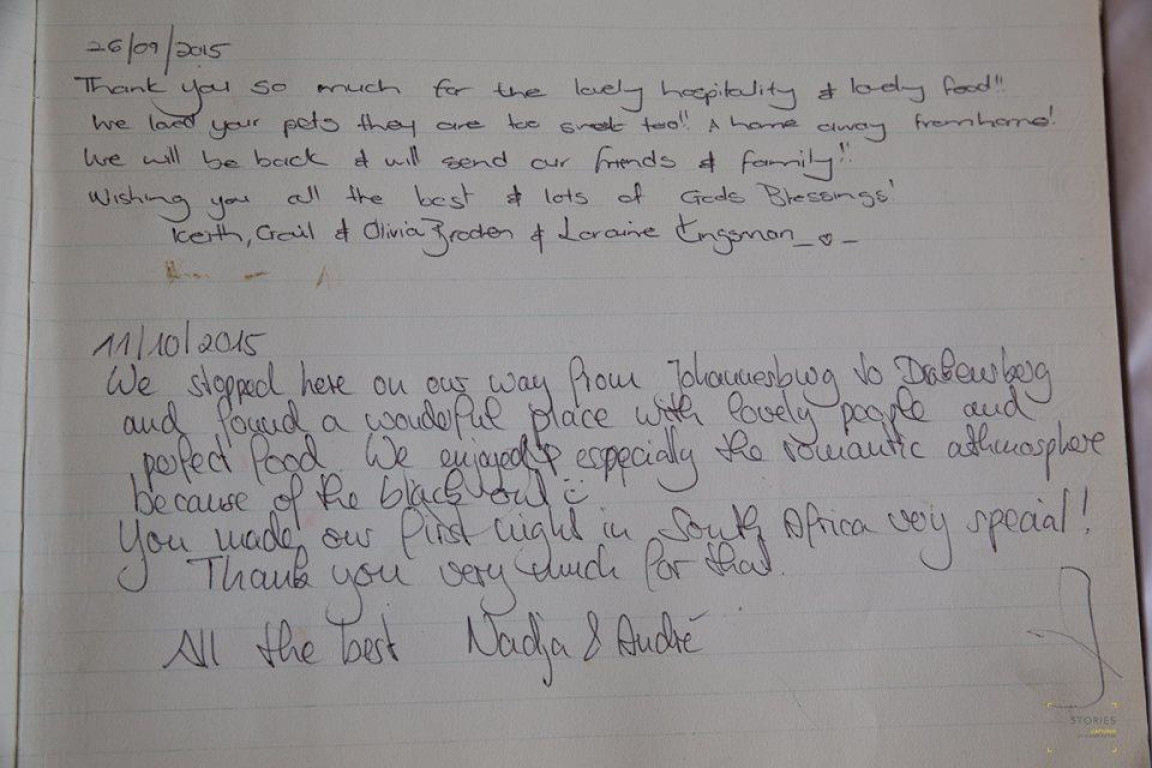 26/09/2015
Thank you so much for the lovely hospitality & lovely food!!
We loved your pets they are too sweet too!! A home away from home!
We will be back & will send our friends & family!!
Wishing you all the best & lots of Gods Blessings!
Keith, Gail & Olivia & Loraine
11/10/2015
We stopped here on our way from Johannesburg to
and found a wonderful place with lovely people and
perfect food. We enjoyed especially the romantic athmosphere
because of the black out
You made our first night in South Africa very special!
Thank you very much for that.
All the best Nadja & André
STORIES